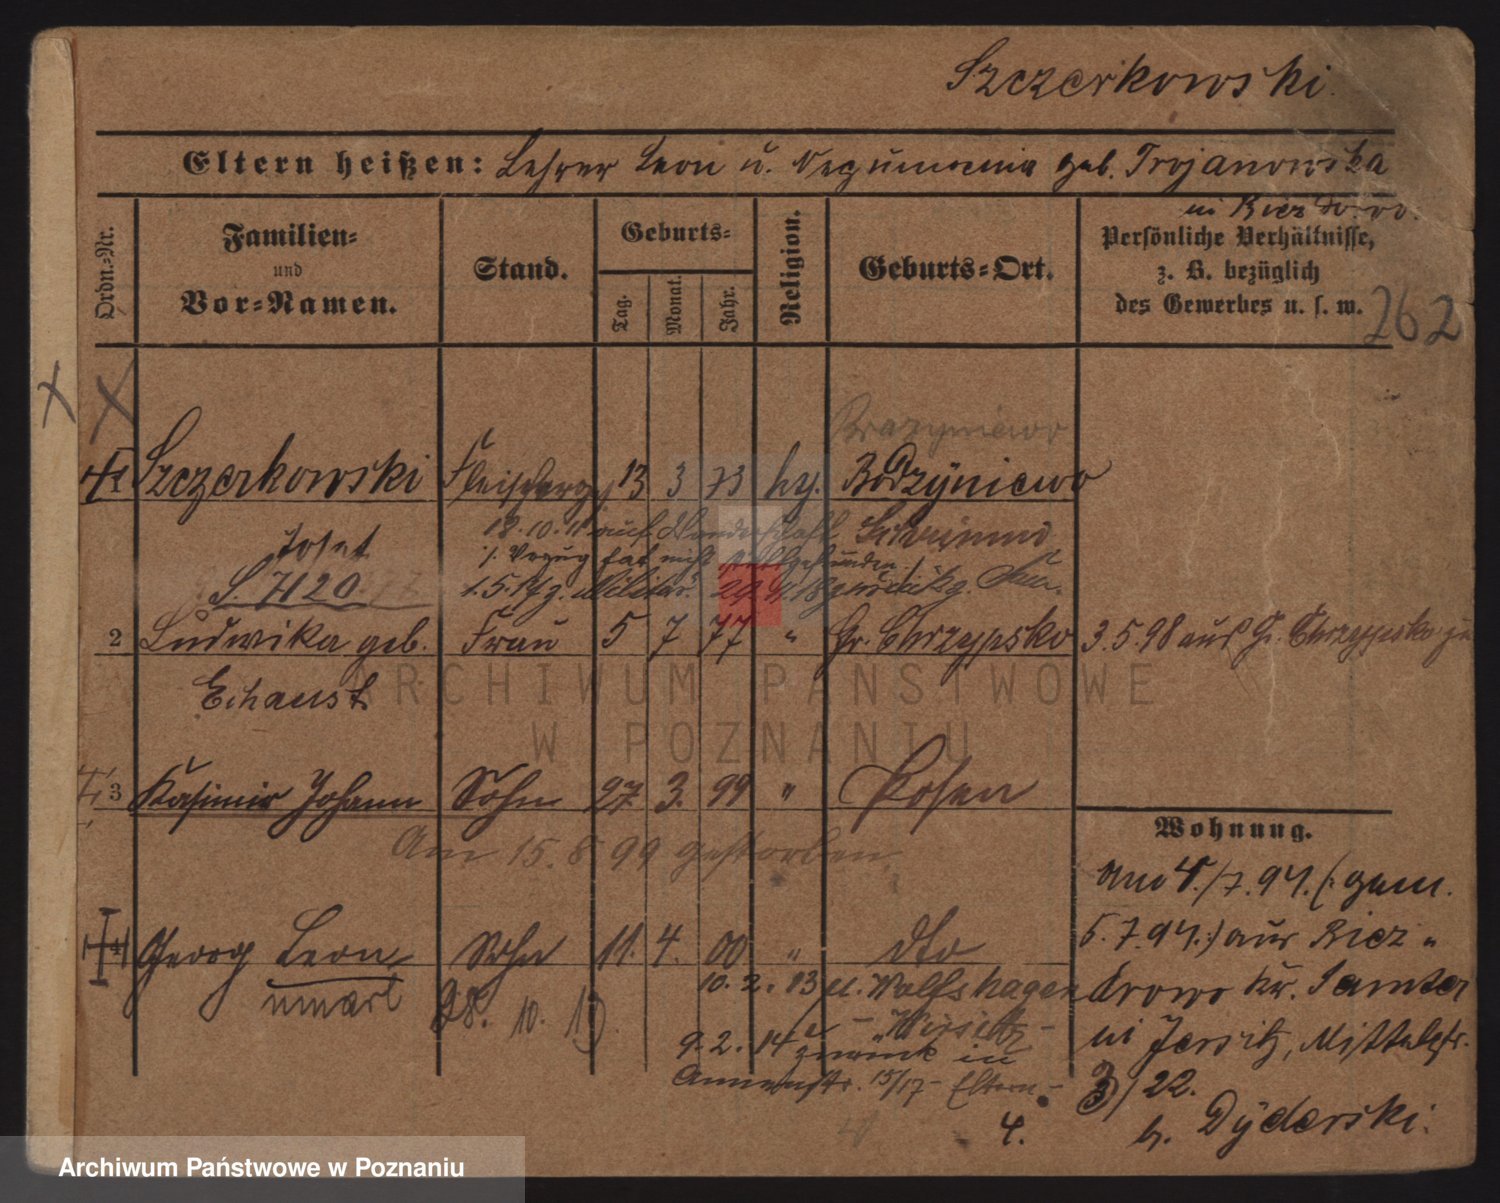 Szczerkowski.
Eltern heißen: Lehrer Leon u. geb. Trojanowska
in Biezdrowo.
Ordn.-Nr.
Familien- und Vor-Namen.
Stand.
Geburts-
Tag.
Monat.
Jahr.
Religion.
Geburts-Ort.
Persönliche Verhältnisse,
z. B. bezüglich
des Gewerbes u. s. w.
262
Szczerkowski Fleischerges 13 3 73 ky. Bodzyniewo
18.10.11 auf
Josef
S. 7120.
1.5.17 z. Militär.
2 Ludwika geb. Frau 5 7 77 " Gr. Chrzypsko 3.5.98 aus Gr. Chrzypsko zu
Echaust
ARCHIWUM PAŃSTWOWE
W POZNANIU
3 Kasimir Johann Sohn 27 3. 99 " Posen
Am 15.8.99 gestorben
Wohnung.
am 4./7.94. (gem.
4 Georg Leon Sohn 11. 4. 00 " dto
5.7.94.) aus Biez-
umarl 28. 10. 19.
10. 2. 13 n. Wolfshagen
drowo Kr. Samter
- Wirsitz -
9. 2. 14 zurück in
in Jersitz, Mittelstr.
Annenstr. 15/17 - Eltern -
3/22.
4.
b. Dyderski.
Archiwum Państwowe w Poznaniu